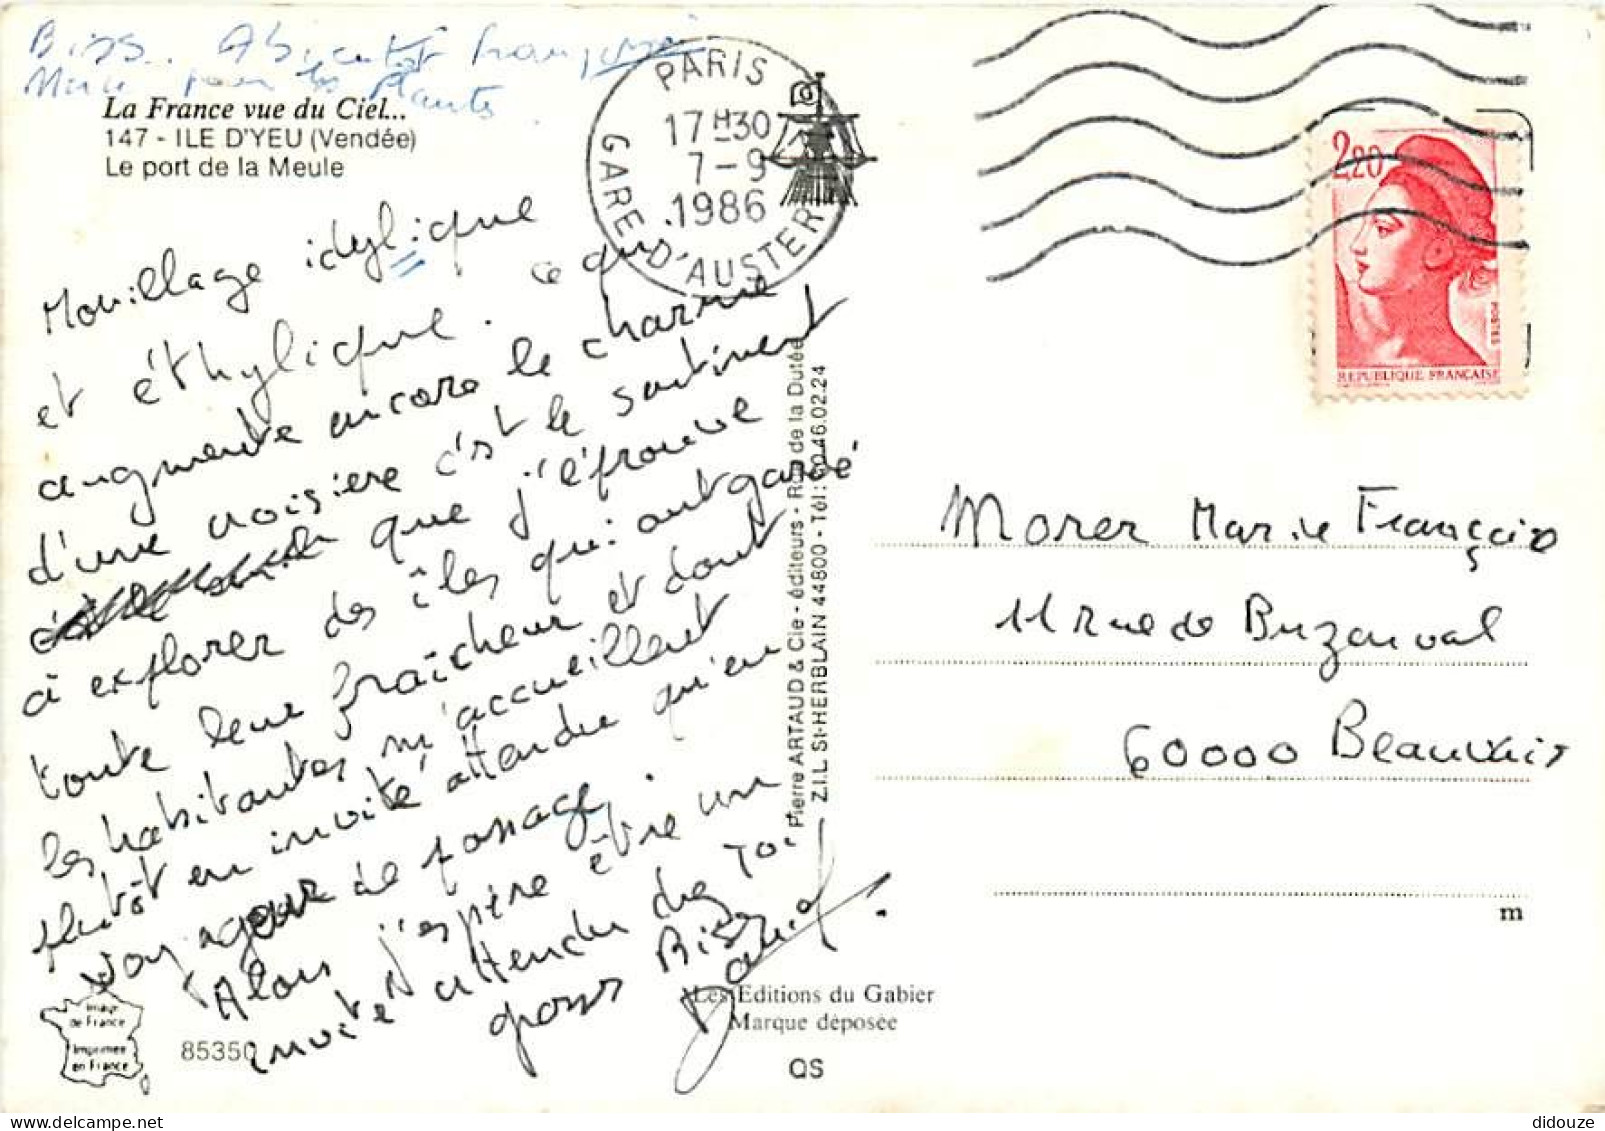 Biss. A bientôt françoise
Merci pour les Plantes.
La France vue du Ciel...
147 - ILE D'YEU (Vendée)
Le port de la Meule
Mouillage idylique
et éthylique. ce qui
augmente encore le charme
d'une croisière c'est le sentiment
que j'éprouve
à explorer des îles qui ont gardé
toute leur fraîcheur et dont
les habitantes m'accueillent
plutôt en invité attendu qu'en
voyageur de passage.
Alors j'espère être un
invité attendu chez toi
gross Biss
Daniel
Image
de France
Imprimée
en France
85350
PARIS
17H30
7-9
1986
GARE D'AUSTER
Pierre ARTAUD & Cie - éditeurs - Rue de la Dutée
Z.I.L St-HERBLAIN 44800 - Tél : 40.46.02.24
Les Editions du Gabier
Marque déposée
QS
2,20
POSTES
REPUBLIQUE FRANÇAISE
Morer Marie Françoise
11 rue de Buzenval
60000 Beauvais
m
didouze